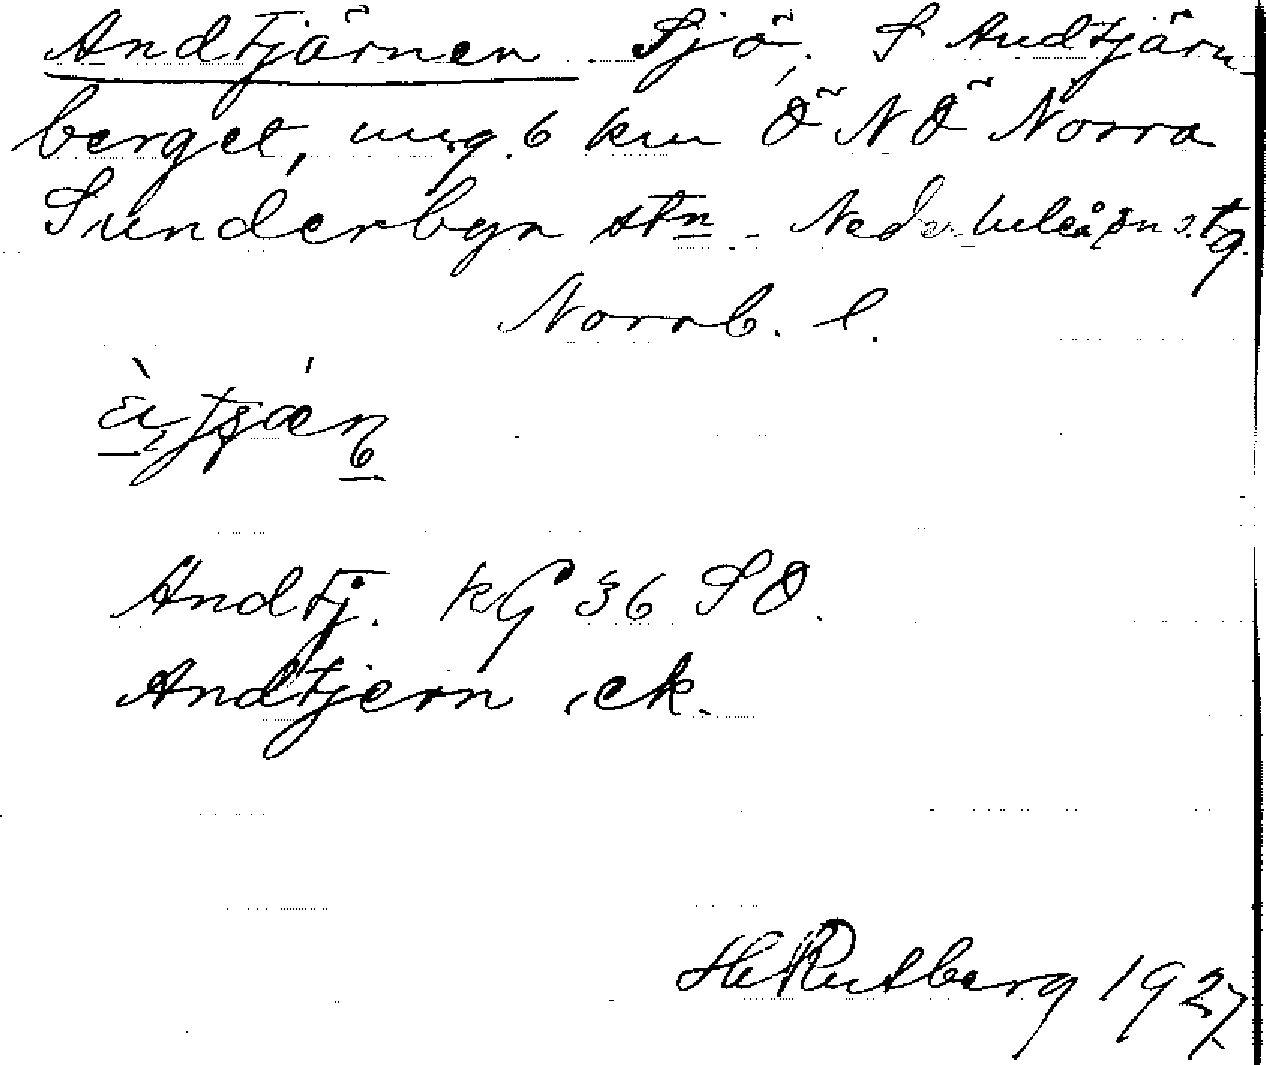 Andtjärnen Sjö, S Andtjärn-
berget, ung. 6 km ÖNÖ Norra
Sunderbyn stn - Nederluleå sn s. tg.
Norrb. l.
Andtj. kG 36 SO.
Andtjern , ek.
H Rutberg 1927